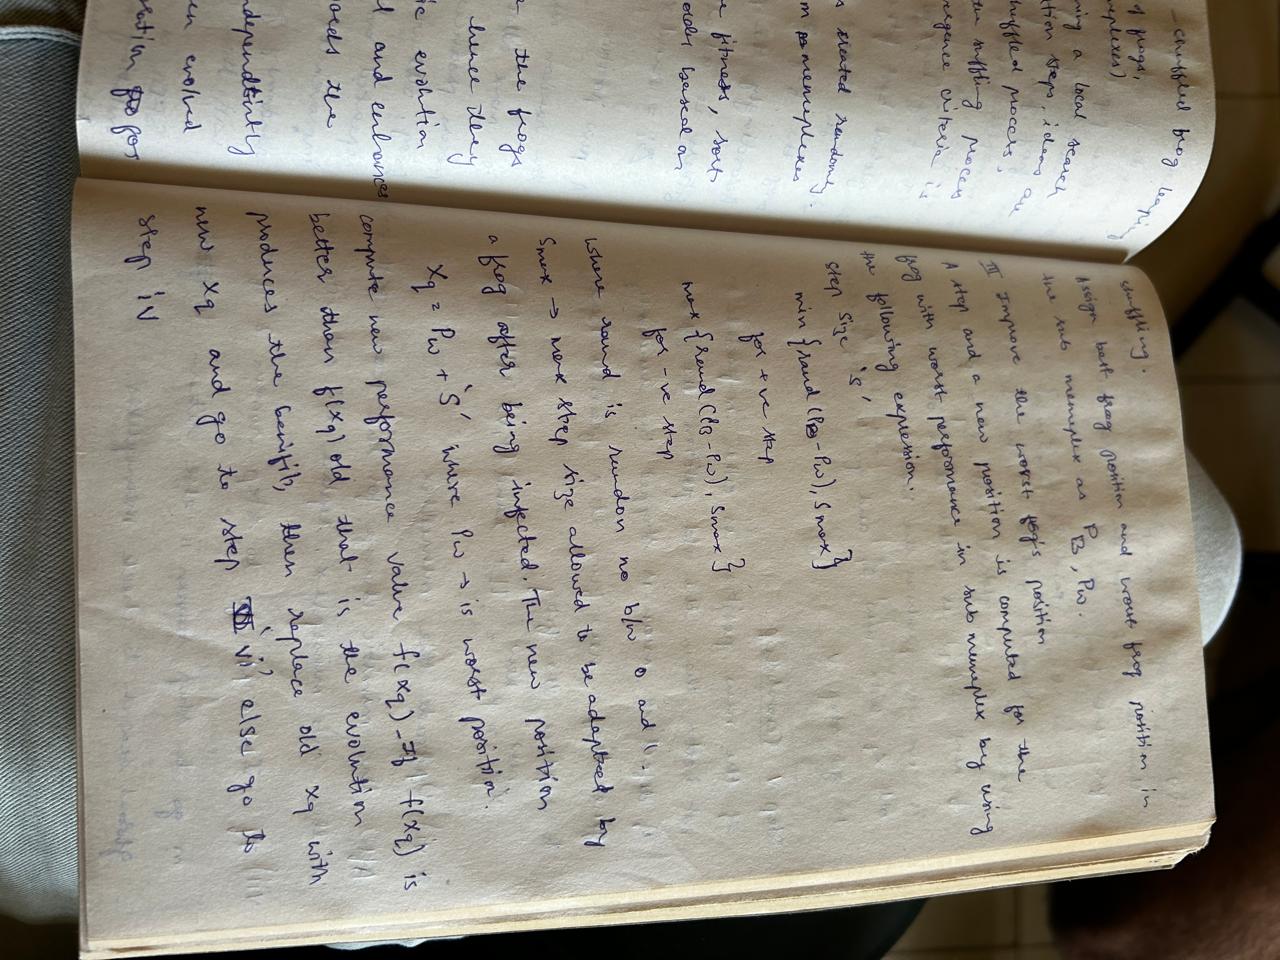 shuffled frog leaping
of frogs,
mplexes)
ing a local search
ition steps, ideas are
shuffled process,
suffling process
rgence criteria is
s created randomly.
m memeplexes
e fitness, sorts
based on
the frogs
hence they
ic evolution
and enhances
the
ndependently
en evolved
for
shuffling.
Assign best frog position and worst frog position in
the sub memplex as PB, Pw.
III Improve the worst frog's position
A step and a new position is computed for the
frog with worst performance in sub memplex by using
the following expression.
step size 's'
min {rand (PB - Pw), Smax}
for +ve step
max {rand (PB - Pw), Smax}
for -ve step
where rand is random no b/w 0 and 1.
Smax → max step size allowed to be adapted by
a frog after being infected. The new position
Xq = Pw + 'S' where Pw → is worst position.
compute new performance value f(xq) - If f(xq) is
better than f(xq) old that is the evolution
produces the benifit, then replace old xq with
new xq and go to step vi, else go to
step iv